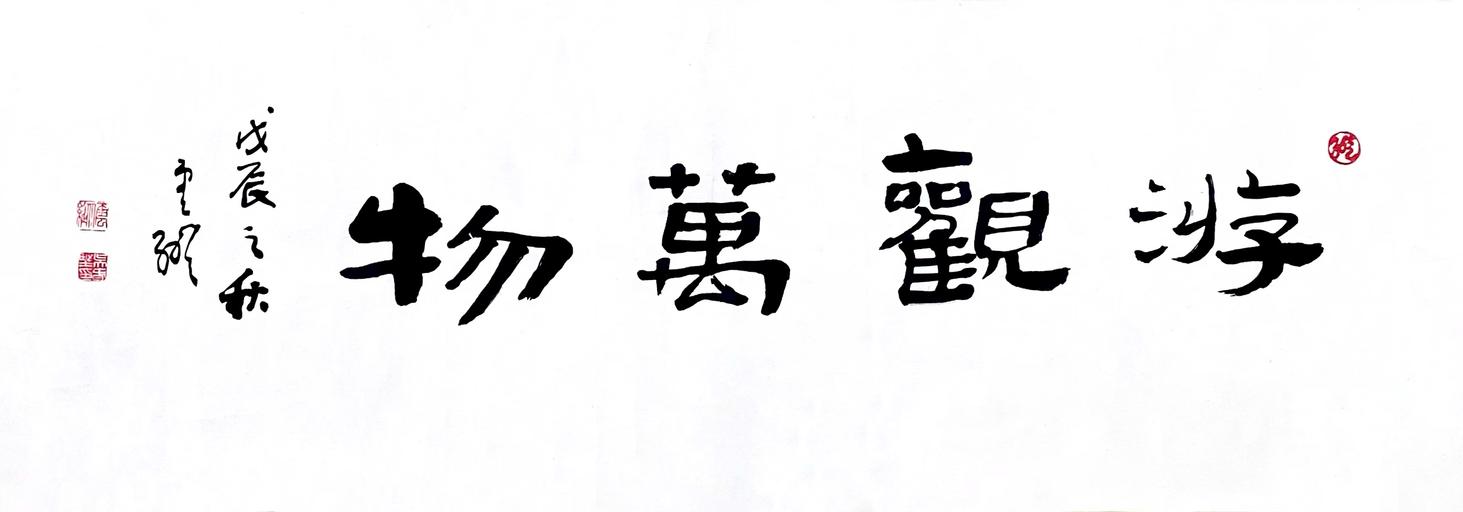 游觀萬物
戊辰之秋